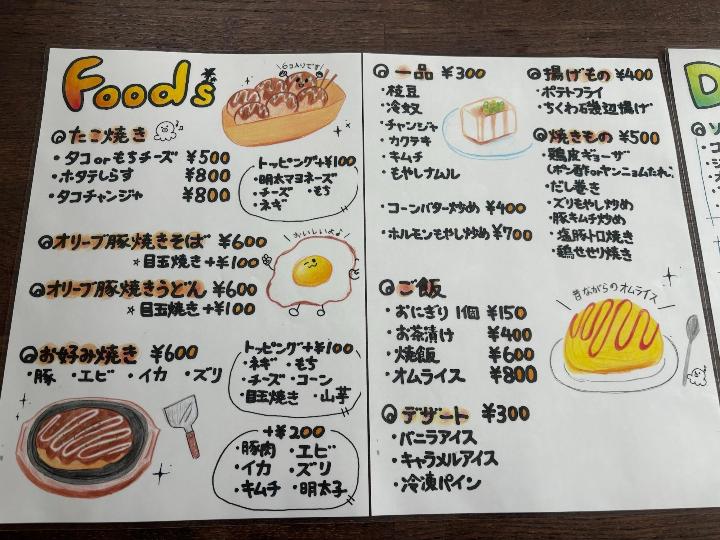 Foods
6コ入りです
たこ焼き
・タコorもちチーズ ¥500
・ホタテしらす ¥800
・タコチャンジャ ¥800
トッピング+¥100
・明太マヨネーズ
・チーズ ・もち
・ネギ
オリーブ豚焼きそば ¥600
*目玉焼き+¥100
オリーブ豚焼きうどん ¥600
*目玉焼き+¥100
おいしいよぉ
お好み焼き ¥600
・豚 ・エビ ・イカ ・ズリ
トッピング+¥100
・ネギ ・もち
・チーズ ・コーン
・目玉焼き ・山芋
+¥200
・豚肉 ・エビ
・イカ ・ズリ
・キムチ ・明太子
一品 ¥300
・枝豆
・冷奴
・チャンジャ
・カクテキ
・キムチ
・もやしナムル
・コーンバター炒め ¥400
・ホルモンもやし炒め ¥700
揚げもの ¥400
・ポテトフライ
・ちくわ石磯辺揚げ
焼きもの ¥500
・鶏皮ギョーザ
(ポン酢orヤンニョムたれ)
・だし巻き
・ズリもやし炒め
・豚キムチ炒め
・塩豚トロ焼き
・鶏せせり焼き
ご飯
・おにぎり 1個 ¥150
・お茶漬け ¥400
・焼飯 ¥600
・オムライス ¥800
昔ながらのオムライス
デザート ¥300
・バニラアイス
・キャラメルアイス
・冷凍パイン
D